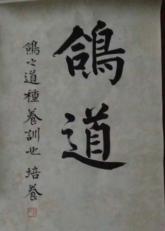 鴿道
鴿之道種養訓也 培養